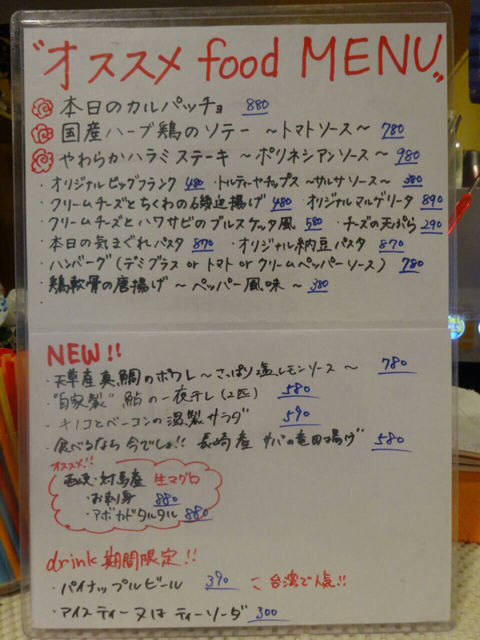 "オススメ food MENU"
本日のカルパッチョ 880
国産ハーブ鶏のソテー ～トマトソース～ 780
やわらかハラミステーキ ～ポリネシアンソース～ 980
・オリジナルビッグフランク 480 ・トルティーヤチップス ～サルサソース～ 380
・クリームチーズとちくわの石磯辺揚げ 480 ・オリジナルマルゲリータ 890
・クリームチーズとハワサビのブルスケッタ風 580 ・チーズの天ぷら 290
・本日の気まぐれパスタ 870 ・オリジナル納豆パスタ 870
・ハンバーグ (デミグラス or トマト or クリームペッパーソース) 780
・鶏軟骨の唐揚げ ～ペッパー風味～ 380
NEW!!
・天草産真鯛のポワレ～さっぱり塩レモンソース～ 780
・"自家製" 鮎の一夜干し(2匹) 580
・キノコとベーコンの温製サラダ 590
・食べるなら今でしょ!! 長崎産 サバの竜田揚げ 580
オススメ!!
対馬産 生マグロ
・お刺身 880
・アボカドタルタル 880
drink 期間限定!!
・パイナップルビール 390 台湾で人気!!
・アイスティー又はティーソーダ 300